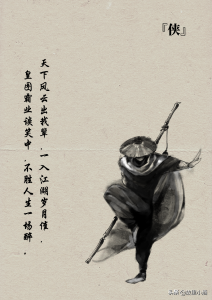 『侠』
天下风云出我辈，一入江湖岁月催，
皇图霸业谈笑中，不胜人生一场醉。